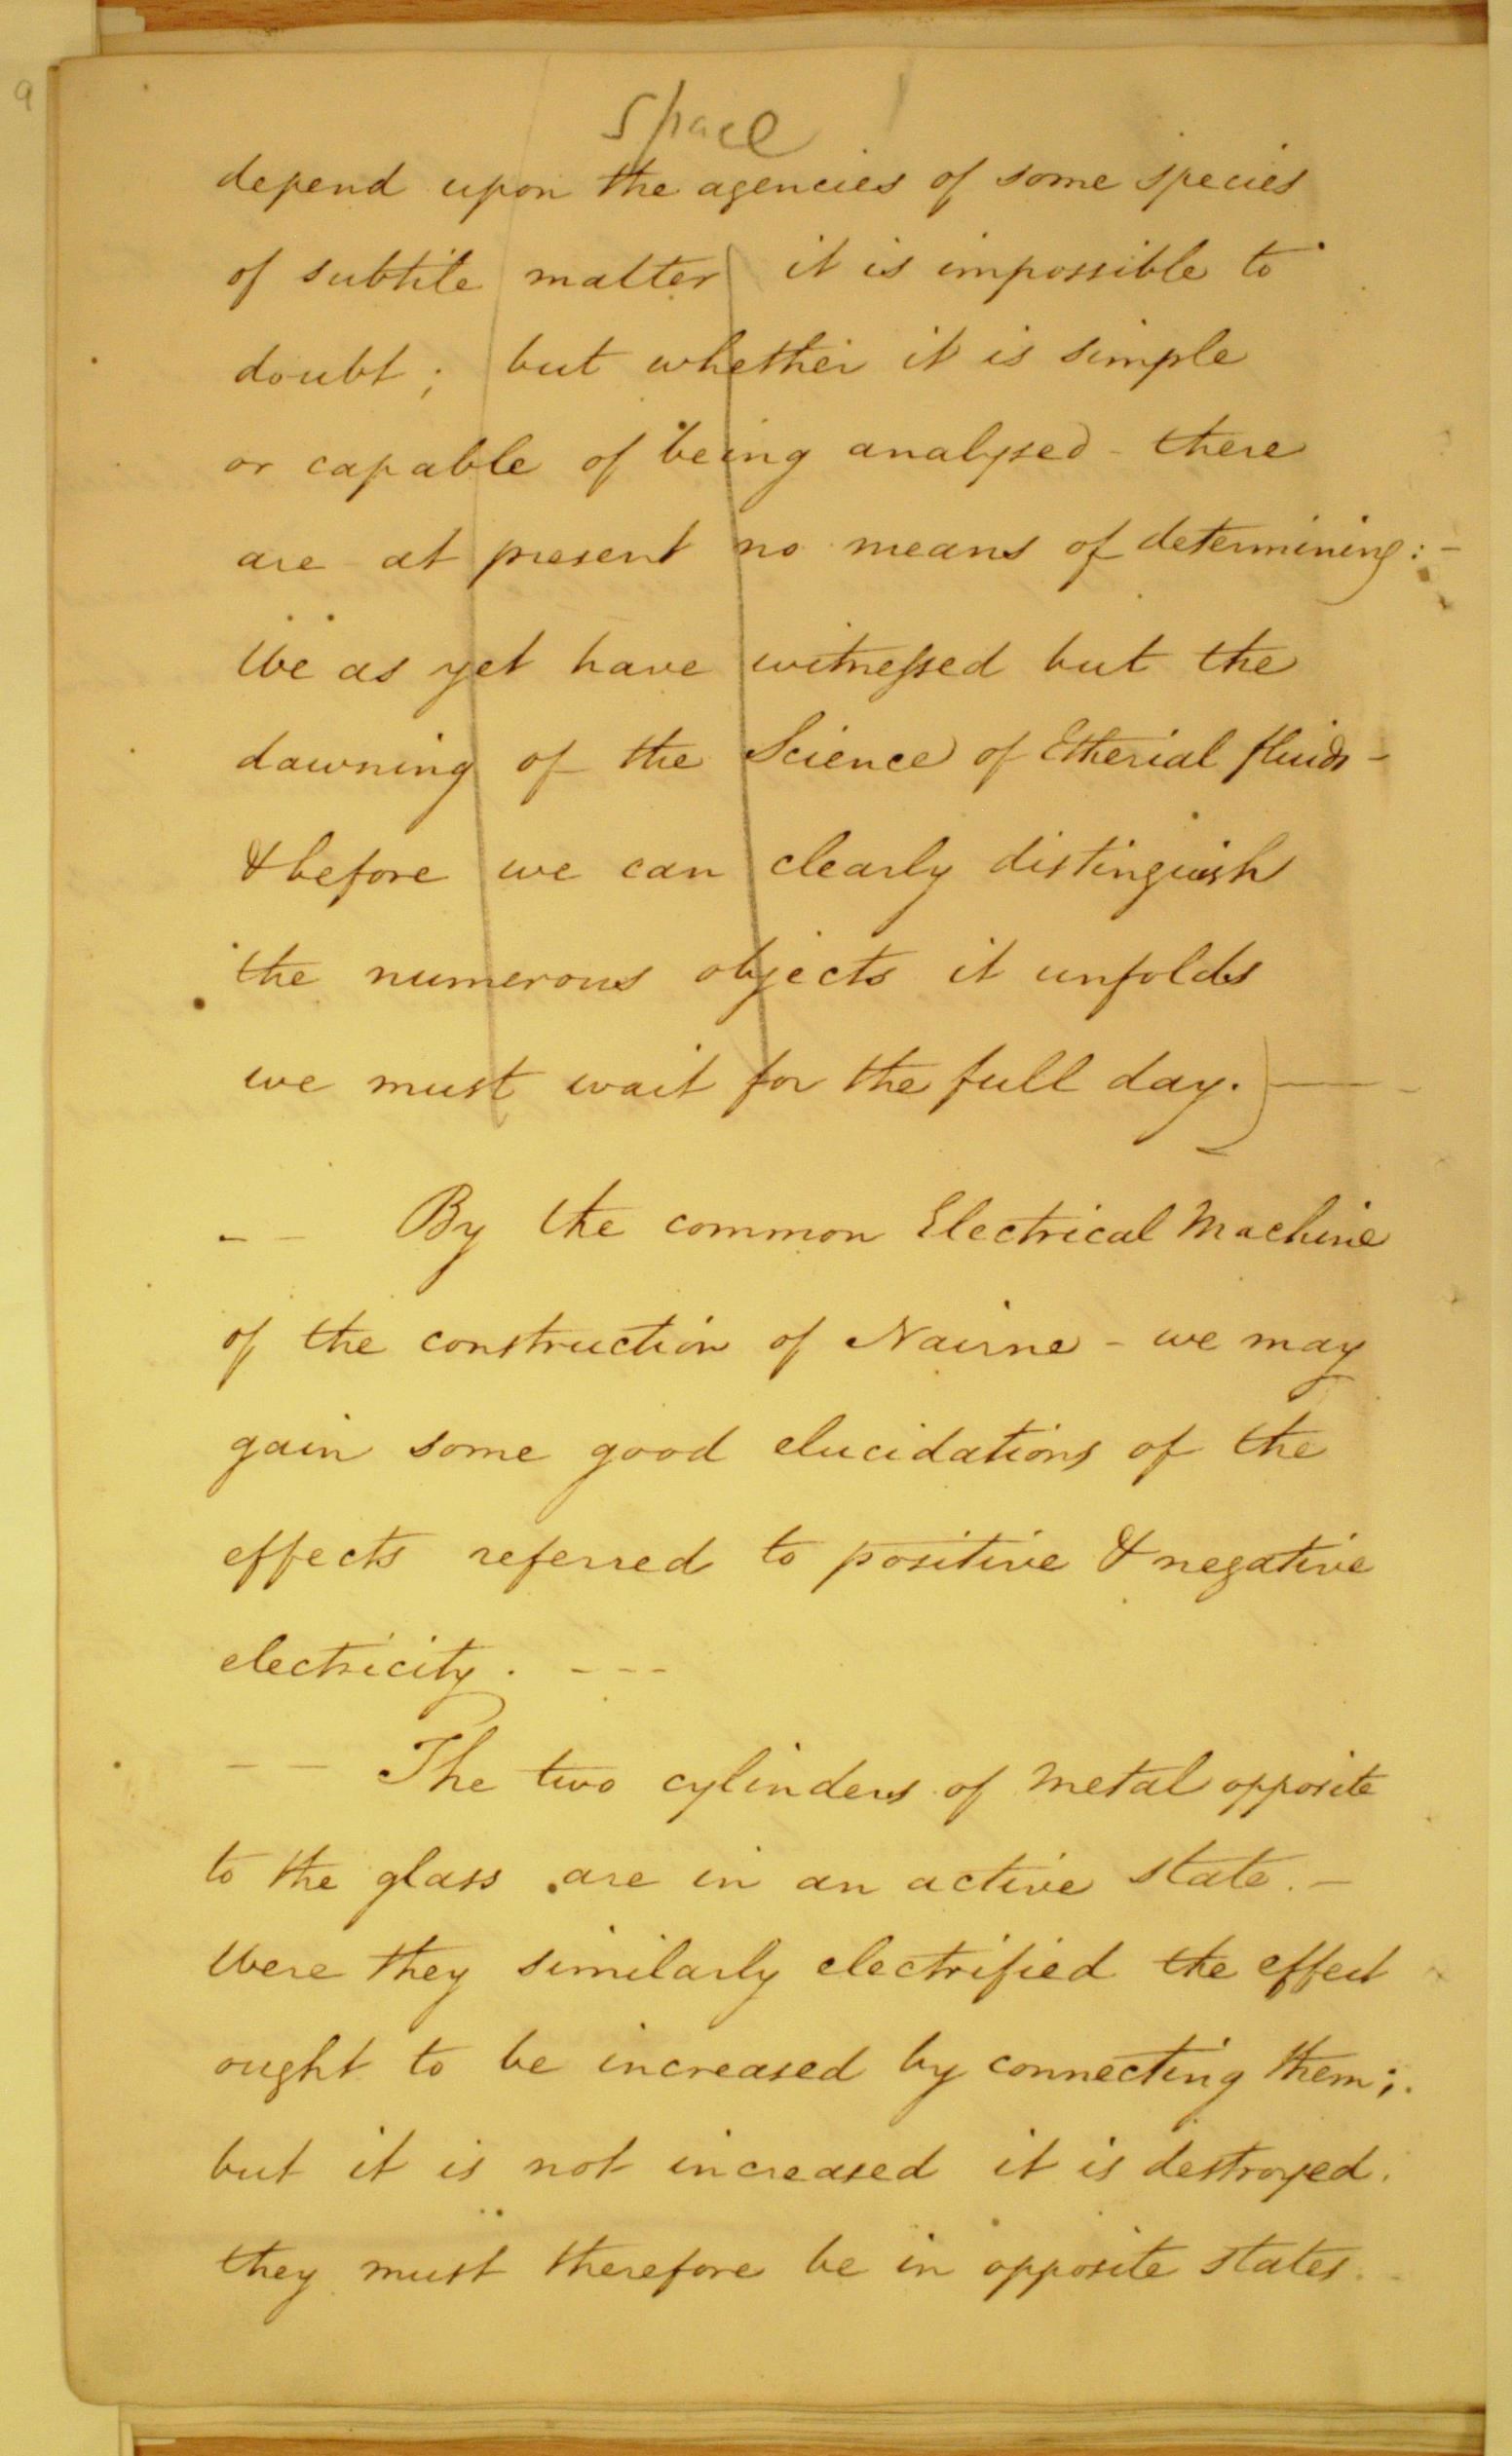 9
Space
depend upon the agencies of some species
of subtile matter it is impossible to
doubt; but whether it is simple
or capable of being analysed - there
are at present no means of determining: -
We as yet have witnessed but the
dawning of the Science of Etherial fluids -
& before we can clearly distinguish
the numerous objects it unfolds
we must wait for the full day.) —
- - By the common Electrical Machine
of the construction of Nairne - we may
gain some good elucidations of the
effects referred to positive & negative
electricity. - - -
- - The two cylinders of metal opposite
to the glass are in an active state. -
Were they similarly electrified the effect
ought to be increased by connecting them;.
but it is not increased it is destroyed.
they must therefore be in opposite states.